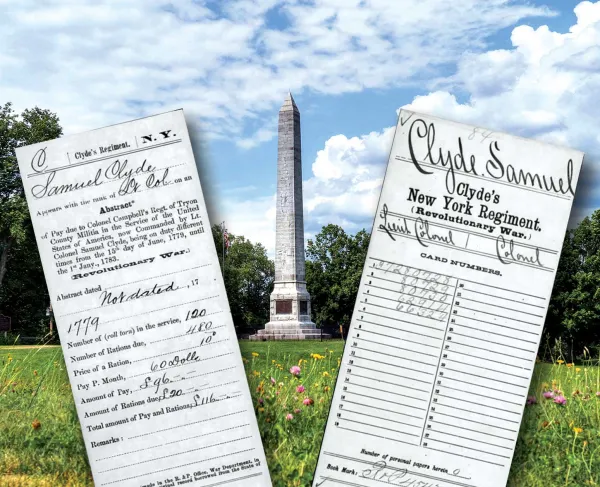 C | Clyde's Regiment, | N. Y.
Samuel Clyde
Appears with the rank of Lt Col. on an
Abstract*
of Pay due to Colonel Campbell's Regt. of Tryon
County Militia in the Service of the United
States of America, now Commanded by Lt.
Colonel Samuel Clyde, being on duty different
times from the 15th day of June, 1779, until
the 1st Jany., 1783.
Revolutionary War.
Abstract dated Not dated, 17
1779
Number of (roll torn) in the service, 120
Number of Rations due, 480
Price of a Ration, 10
Pay P. Month, 60 Dolls
Amount of Pay, $96
Amount of Rations due, $20
Total amount of Pay and Rations, $116
Remarks:
made in the R. & P. Office, War Department, in
record borrowed from the State of
84
Clyde, Samuel
Clyde's
New York Regiment.
(Revolutionary War.)
Lieut Colonel | Colonel
CARD NUMBERS.
1
2
3
4
5
6
7
8
9
10
11
12
13
14
15
Number of personal papers herein 0
Book Mark: